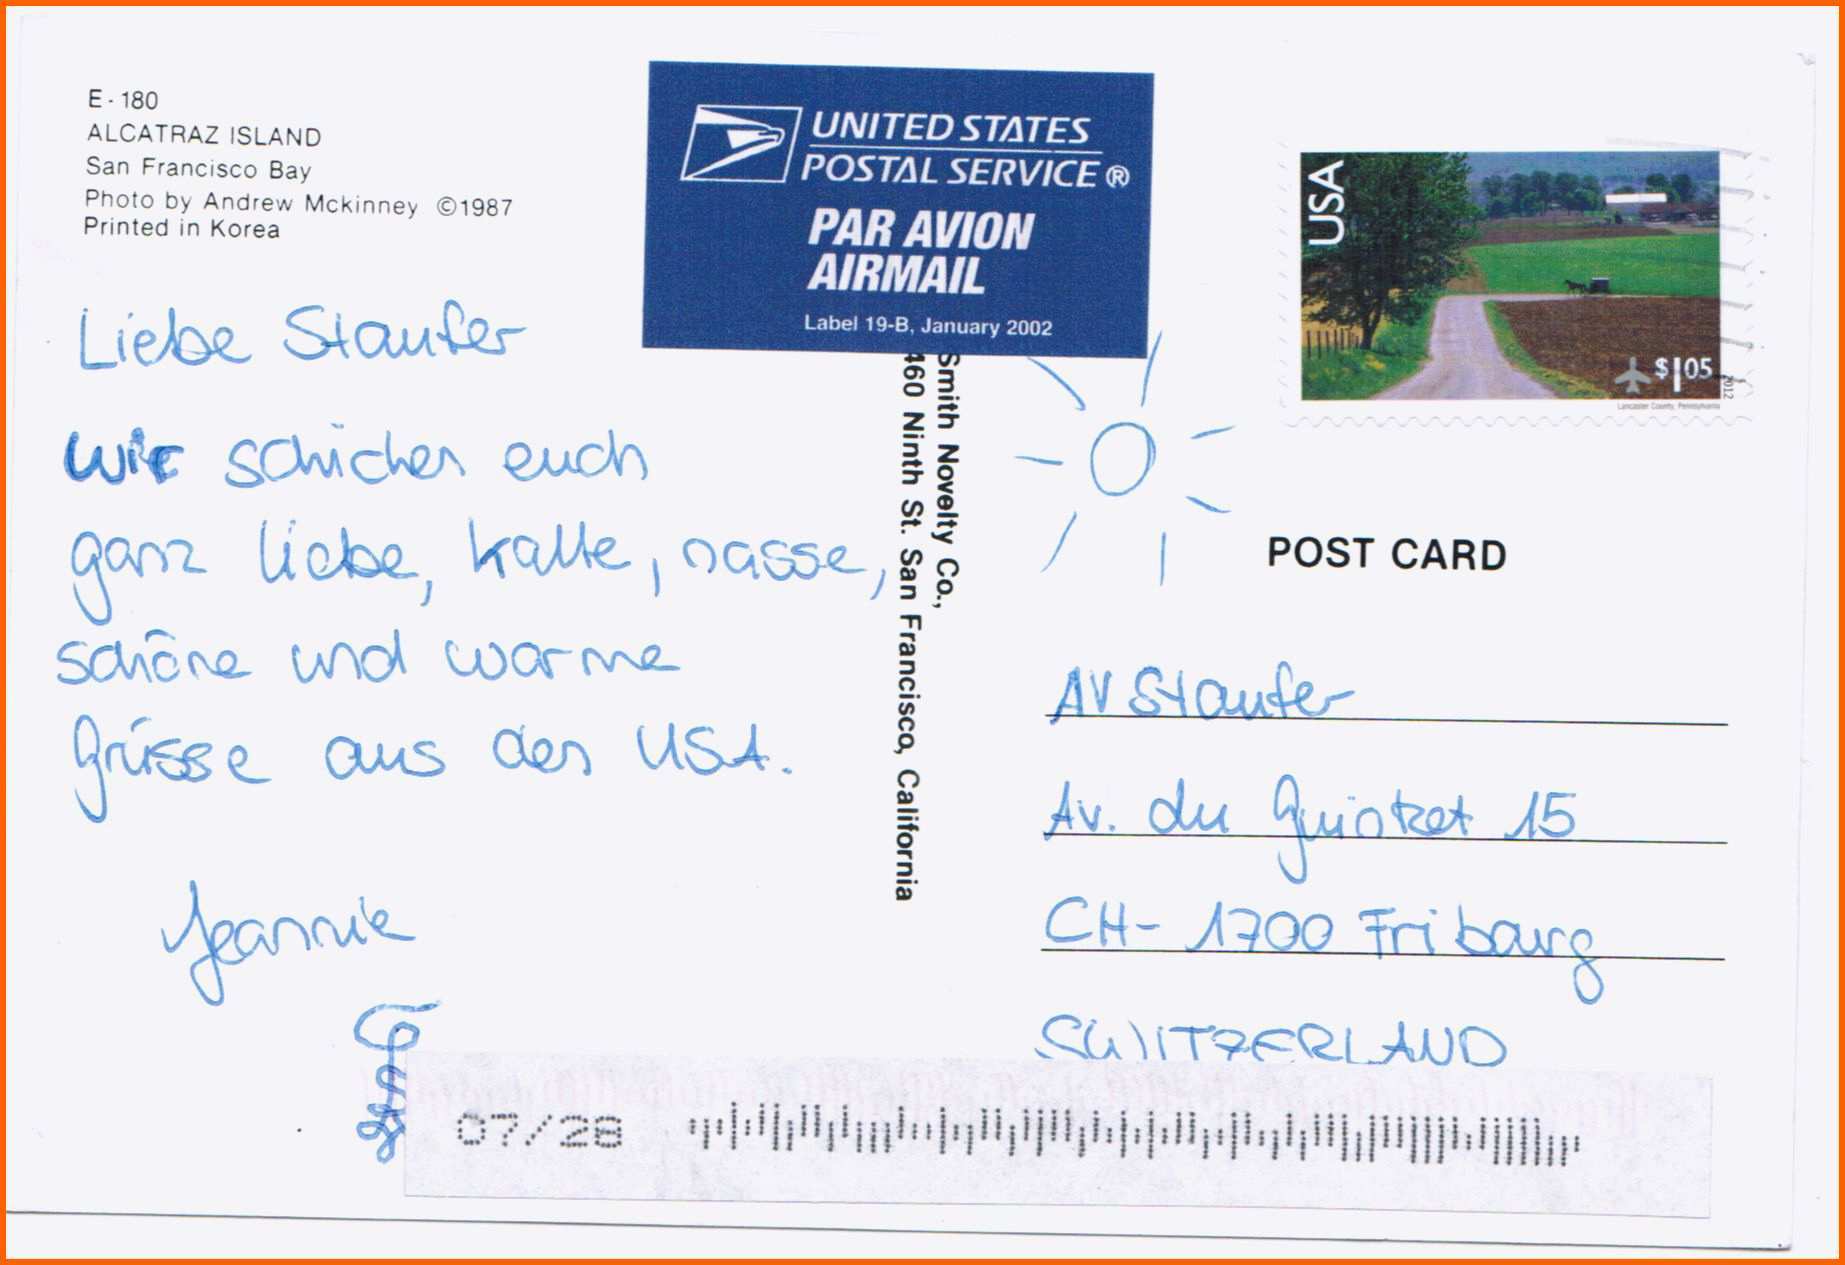 E - 180
ALCATRAZ ISLAND
San Francisco Bay
Photo by Andrew Mckinney ©1987
Printed in Korea
UNITED STATES
POSTAL SERVICE ®
PAR AVION
AIRMAIL
Label 19-B, January 2002
USA
$1.05
2012
Lancaster County, Pennsylvania
Liebe Staufer
wir schicken euch
ganz liebe, kalte, nasse,
schöne und warme
Grüsse aus den USA.
Jeannie
Smith Novelty Co.,
460 Ninth St. San Francisco, California
POST CARD
AV Staufer
Av. du Guintzet 15
CH- 1700 Fribourg
SWITZERLAND
07/28